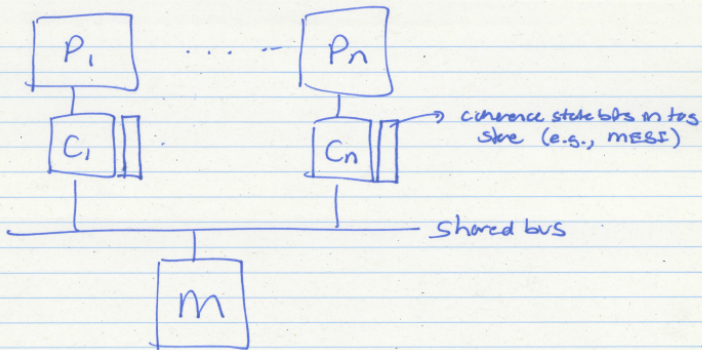 P1 .... -- Pn
C1 Cn
coherence state bits in tag
store (e.g., MESI)
Shared bus
M